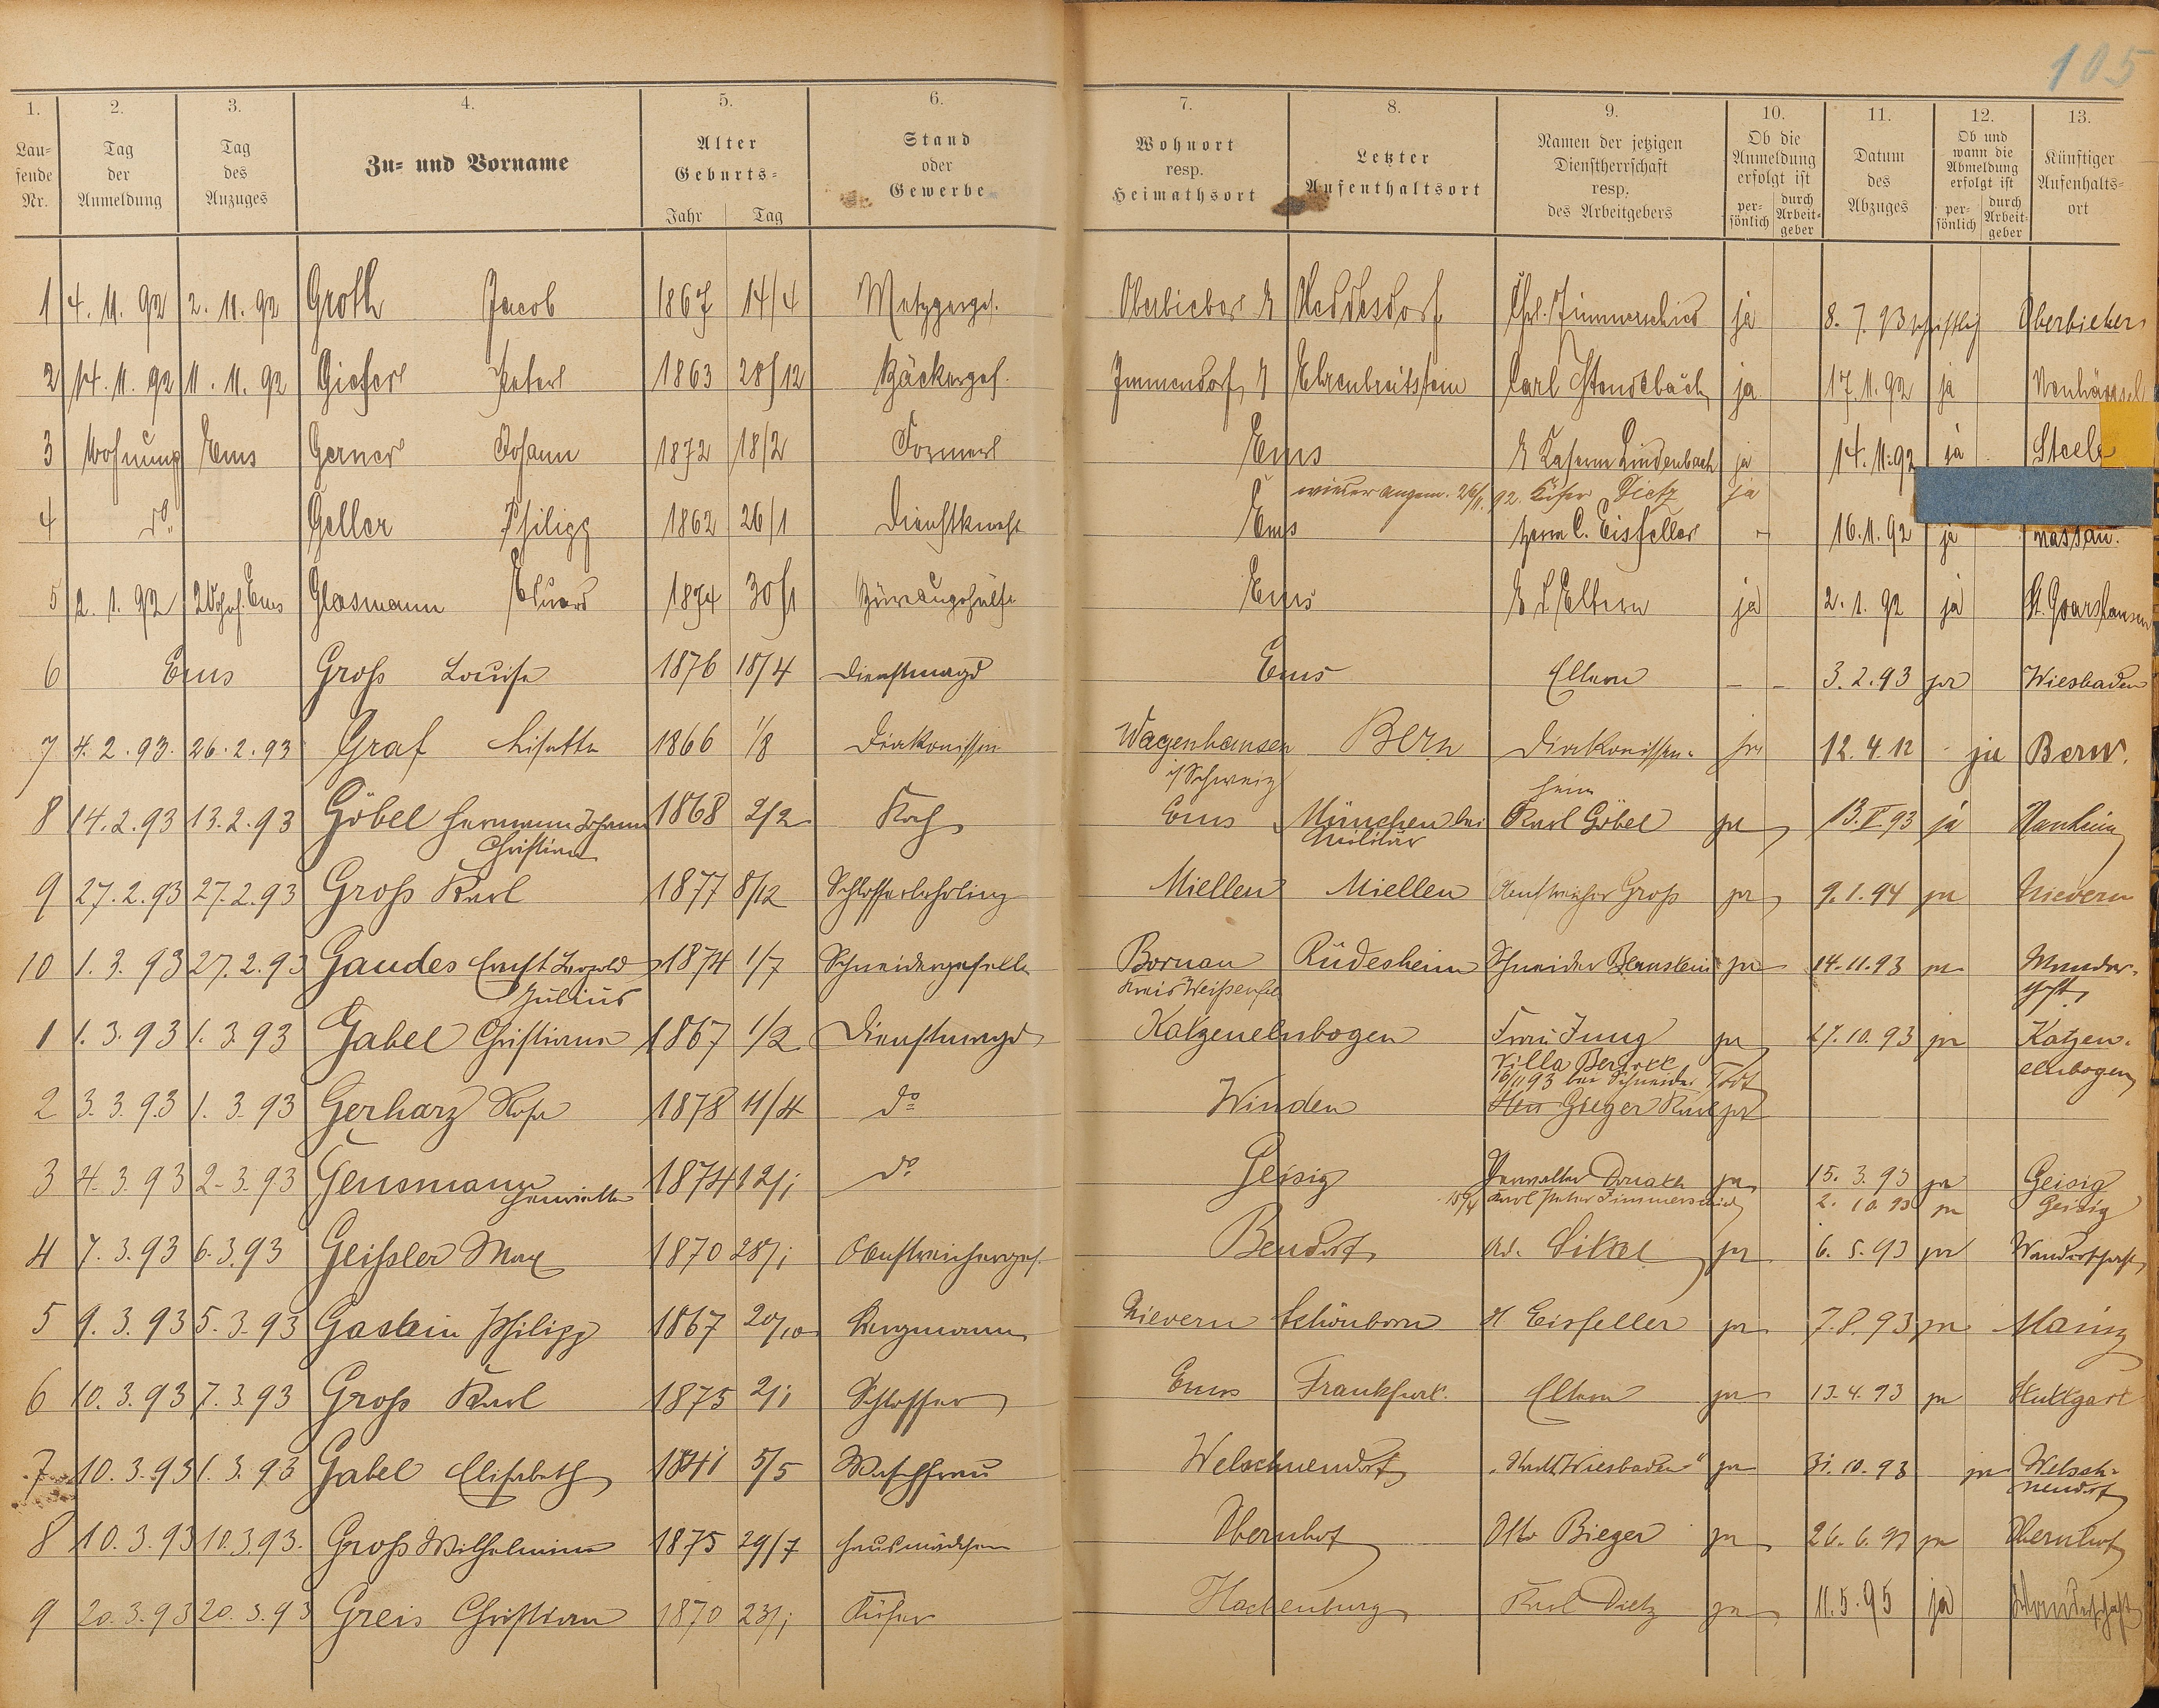 105
1. 2. 3. 4. 5. 6. 7. 8. 9. 10. 11. 12. 13.
Lau-fende Nr. Tag der Anmeldung Tag des Anzuges Zu- und Vorname Alter Geburts- Jahr Tag Stand oder Gewerbe Wohnort resp. Heimathsort Letzter Aufenthaltsort Namen der jetzigen Dienstherrschaft resp. des Arbeitgebers Ob die Anmeldung erfolgt ist per-sönlich durch Arbeit-geber Datum des Abzuges Ob und wann die Abmeldung erfolgt ist per-sönlich durch Arbeit-geber Künftiger Aufenhalts-ort
1 4. 11. 92 2. 11. 92 Groth Jacob 1867 14/4 Metzgerges. Oberbieber Heddesdorf Chr. Zimmerschied ja 8. 7. 93 schriftlich Oberbieber
2 14. 11. 92 11. 11. 92 Gieferl Peter 1863 28/12 Bäckerges. Immendorf Ehrenbreitstein Carl ja 17. 11. 92 ja Neuhäusel
3 Wohnung Ems Gerner Johann 1872 18/2 Former Ems Kaserne Lindenbach ja 14. 11. 92 ja Steele
wieder angem. 26/11. 92. Küfer Dietz ja
4 do. Geller Philipp 1862 26/1 Dienstknecht Ems Herrn C. Eisfeller - 16. 11. 92 ja Nassau.
5 2. 1. 92 Wohn. Ems Glasmann Eduard 1874 30/1 Büreaugehülfe Ems Eltern ja 2. 1. 92 ja St. Goarshausen
6 Ems Groß Louise 1876 18/4 Dienstmagd Ems Eltern - - 3. 2. 93 ja Wiesbaden
7 4. 2. 93. 26. 2. 93 Graf Lisette 1866 1/8 Diakonissin Wagenhausen Bern Diakonissen- ja 12. 4. 12 - ja Bern.
i/Schweiz heim
8 14. 2. 93 13. 2. 93 Göbel Hermann Johann 1868 2/2 Koch Ems München bei Karl Göbel ja 13. V. 93 ja Nauheim
Christian Militär
9 27. 2. 93 27. 2. 93 Groß Karl 1877 8/12 Schlosserlehrling Miellen Miellen Anstreicher Groß ja 9. 1. 94 ja Nievern
10 1. 3. 93 27. 2. 93 Gaudes Ernst Leopold 1874 1/7 Schneidergeselle Bornau Rüdesheim Schneider Bernstein ja 14. 11. 93 ja Wander-
Julius Kreis Weißenfels schft.
1 1. 3. 93 1. 3. 93 Gabel Christiane 1867 1/2 Dienstmagd Katzenelnbogen Frau Jung ja 27. 10. 93 ja Katzen-
Villa elnbogen
16/11 93 bei Schneider Todt
2 3. 3. 93 1. 3. 93 Gerharz Rosa 1878 11/4 do Winden Gieger Karl ja
3 4. 3. 93 2. 3. 93 Gensmann 1874 12/1 do Geisig Verwalter ja 15. 3. 93 ja Geisig
Henriette 15/4 Karl Peter Zimmerschied 2. 10. 93 ja Geisig
4 7. 3. 93 6. 3. 93 Geißler Max 1870 28/1 Anstreicherges. Bendorf Ad. Sittel ja 6. 5. 93 ja Wanderschaft
5 9. 3. 93 5. 3. 93 Gastein Philipp 1867 20/10 Bergmann Nievern Schönborn H Eisfeller ja 7. 8. 93 ja Mainz
6 10. 3. 93 7. 3. 93 Groß Karl 1875 2/1 Schlosser Ems Frankfurt. Eltern ja 13. 4. 93 ja Stuttgart
7 10. 3. 93 1. 3. 93 Gabel Elisabeth 1841 5/5 Waschfrau Welschneudorf „Stadt Wiesbaden“ ja 31. 10. 93 ja Welsch-
neudorf
8 10. 3. 93 10. 3. 93. Groß Wilhelmine 1875 29/7 Hausmädchen Obernhof Otto Bieger ja 26. 6. 93 ja Obernhof
9 20. 3. 93 20. 3. 93 Greis Christian 1870 23/1 Küfer Hachenburg Karl Dietz ja 11. 5. 95 ja Wanderschaft